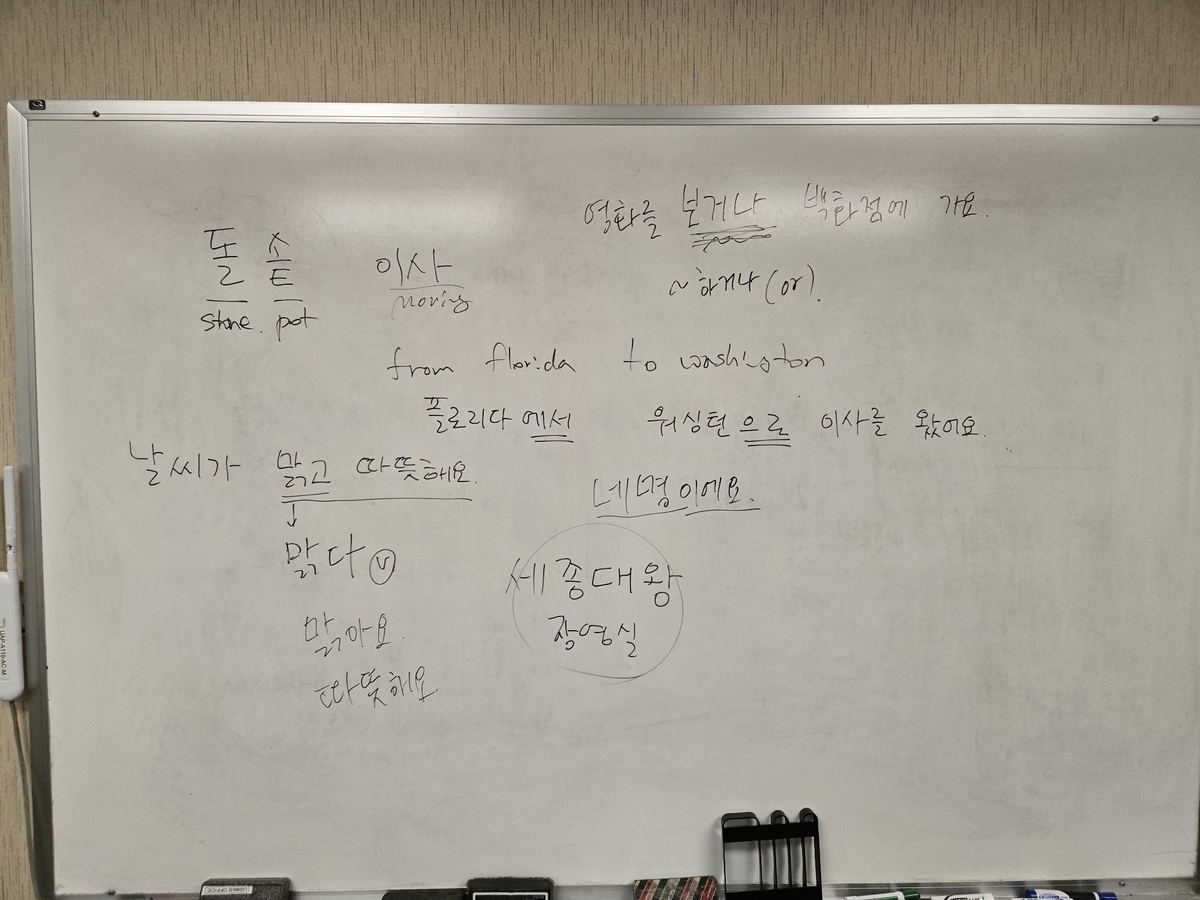 영화를 보거나 백화점에 가요.
~하거나 (or).
돌솥
stone. pot
이사
moving
from florida to washington
플로리다에서 워싱턴으로 이사를 왔어요.
날씨가 맑고 따뜻해요.
↓
맑다 Ⓥ
맑아요.
따뜻해요
네명이에요.
세종대왕
장영실
UAP-AC-M